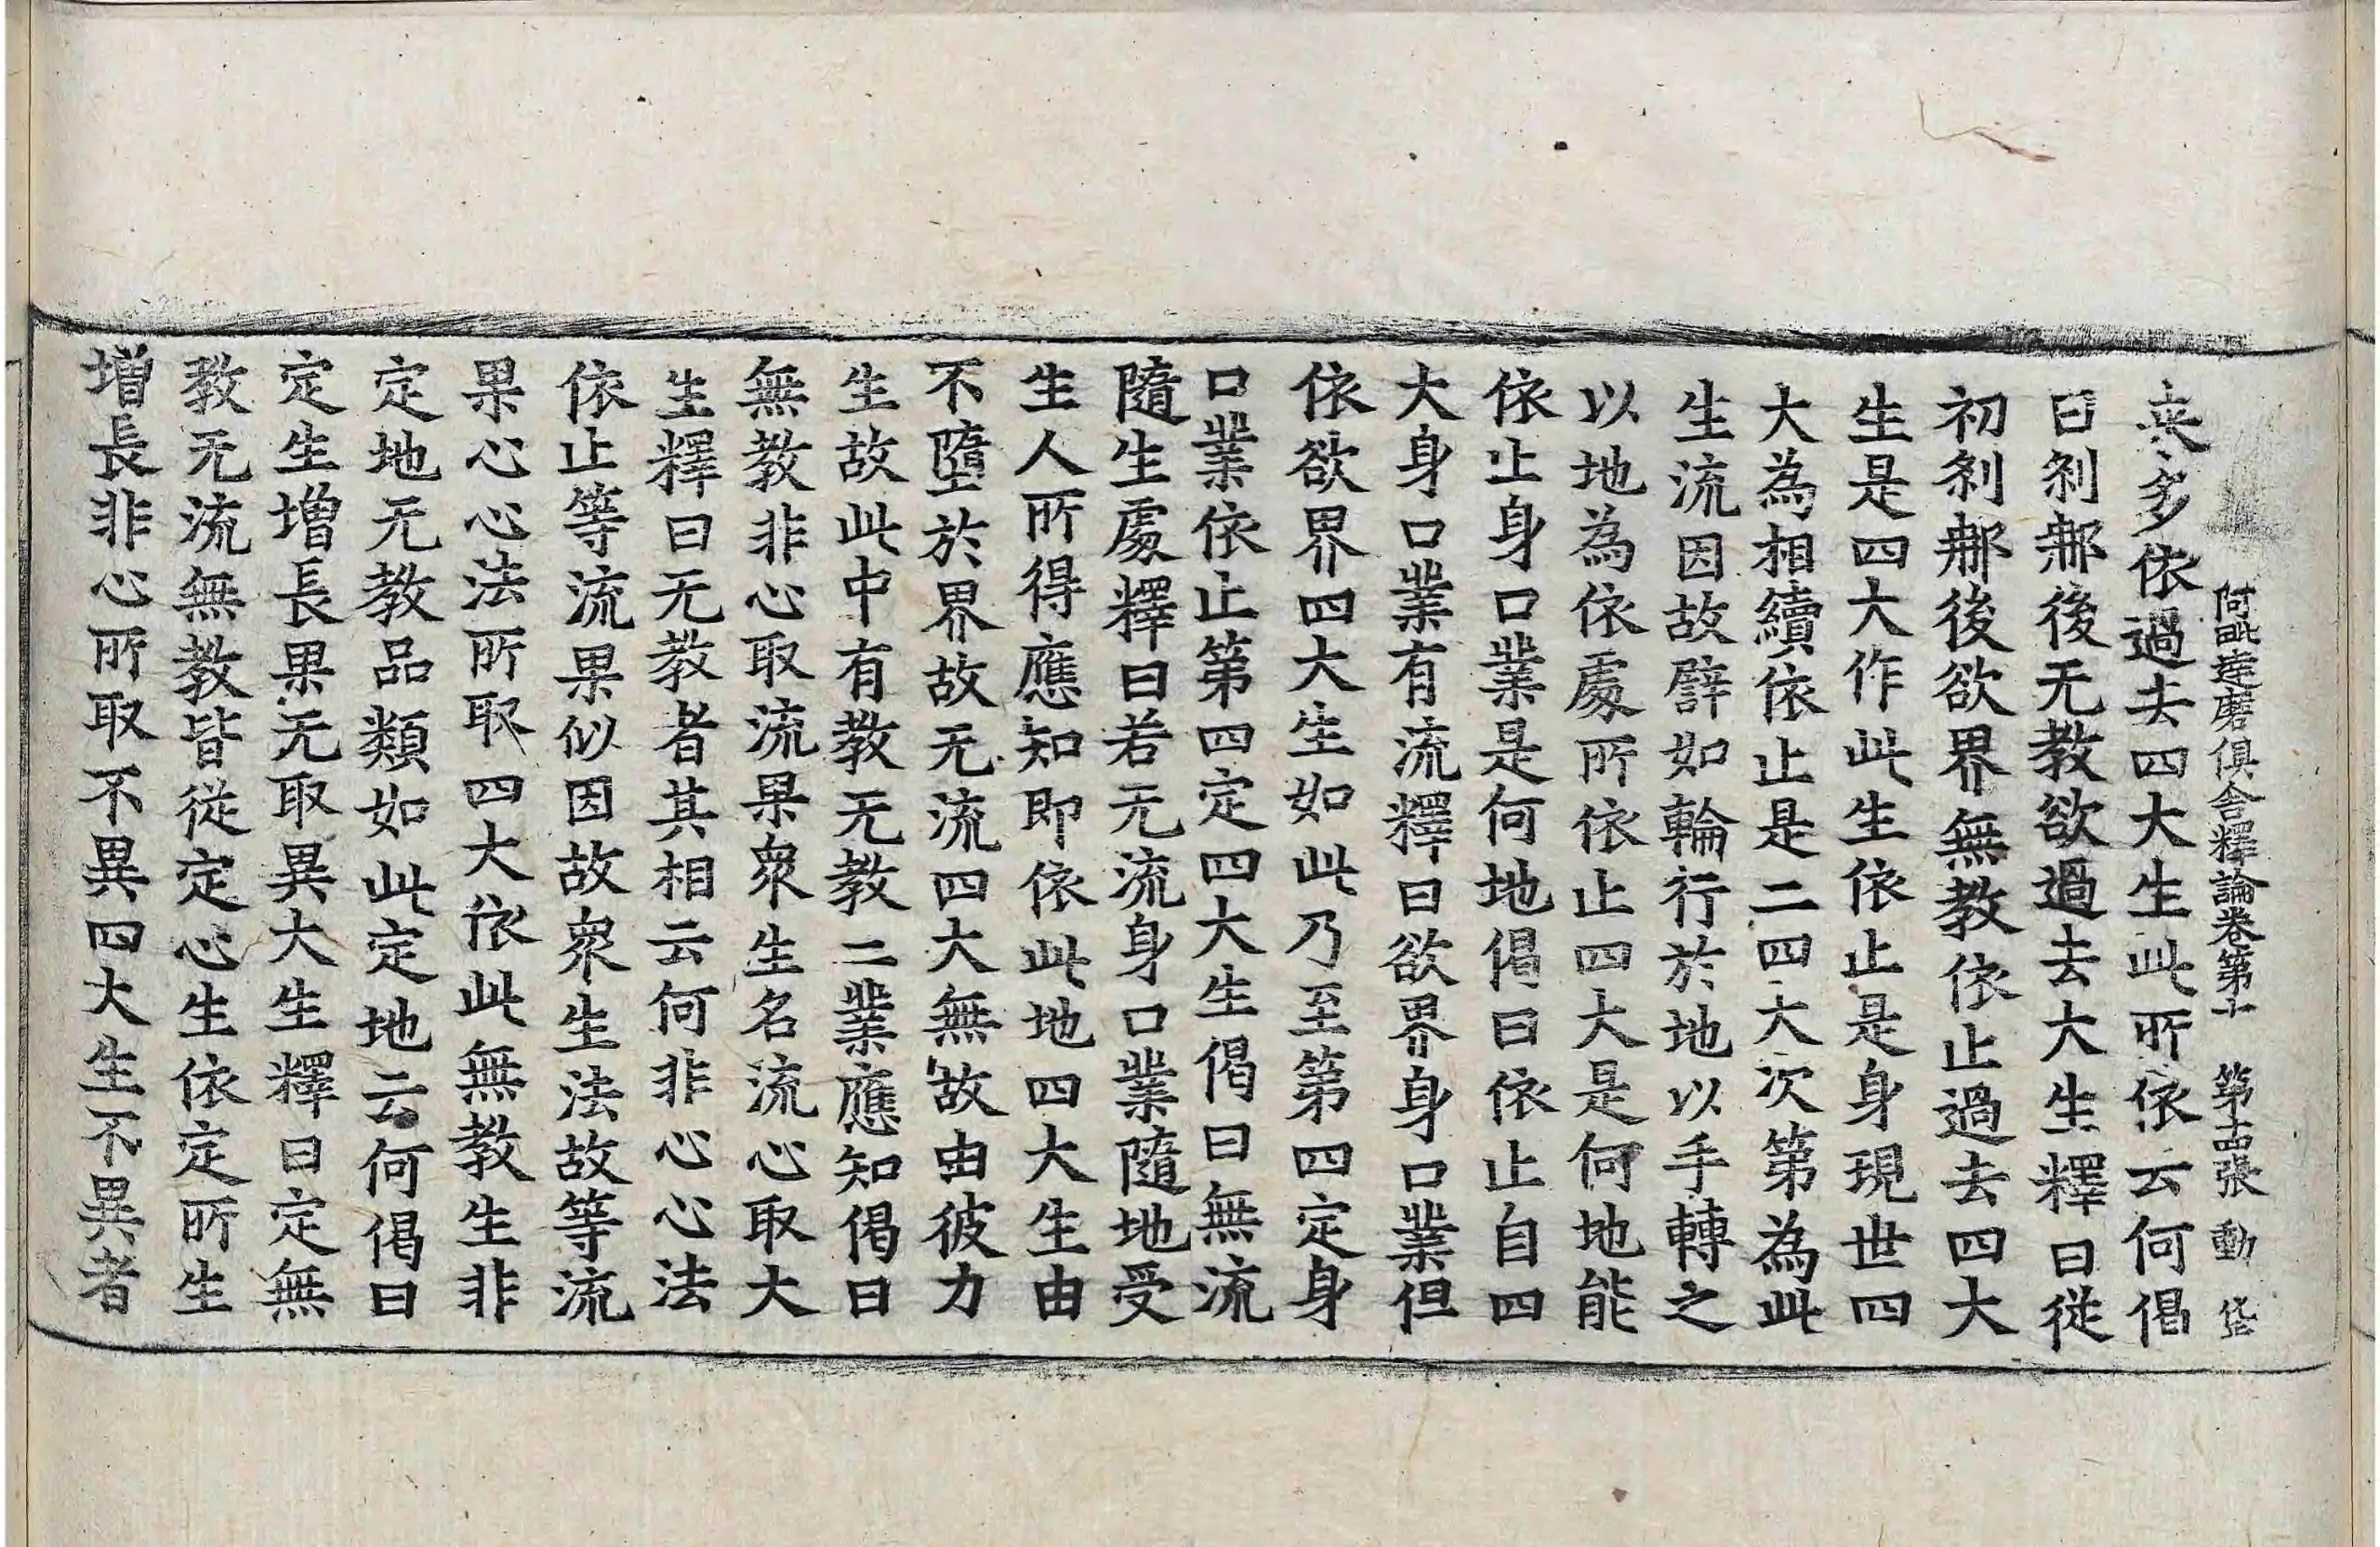 阿毗達磨俱舍釋論卷第十 第十四張 動
㐮多依過去四大生此所依云何偈
曰刹那後无教欲過去大生釋曰從
初刹那後欲界無教依止過去四大
生是四大作此生依止是身現世四
大為相續依止是二四大次第為此
生流因故譬如輪行於地以手轉之
以地為依處所依止四大是何地能
依止身口業是何地偈曰依止自四
大身口業有流釋曰欲界身口業但
依欲界四大生如此乃至第四定身
口業依止第四定四大生偈曰無流
隨生處釋曰若无流身口業隨地受
生人所得應知即依此地四大生由
不墮於界故无流四大無故由彼力
生故此中有教无教二業應知偈曰
無教非心取流果衆生名流心取大
生釋曰无教者其相云何非心心法
依止等流果似因故衆生法故等流
果心心法所取四大依此無教生非
定地无教品類如此定地云何偈曰
定生增長果无取異大生釋曰定無
教无流無教皆從定心生依定所生
增長非心所取不異四大生不異者